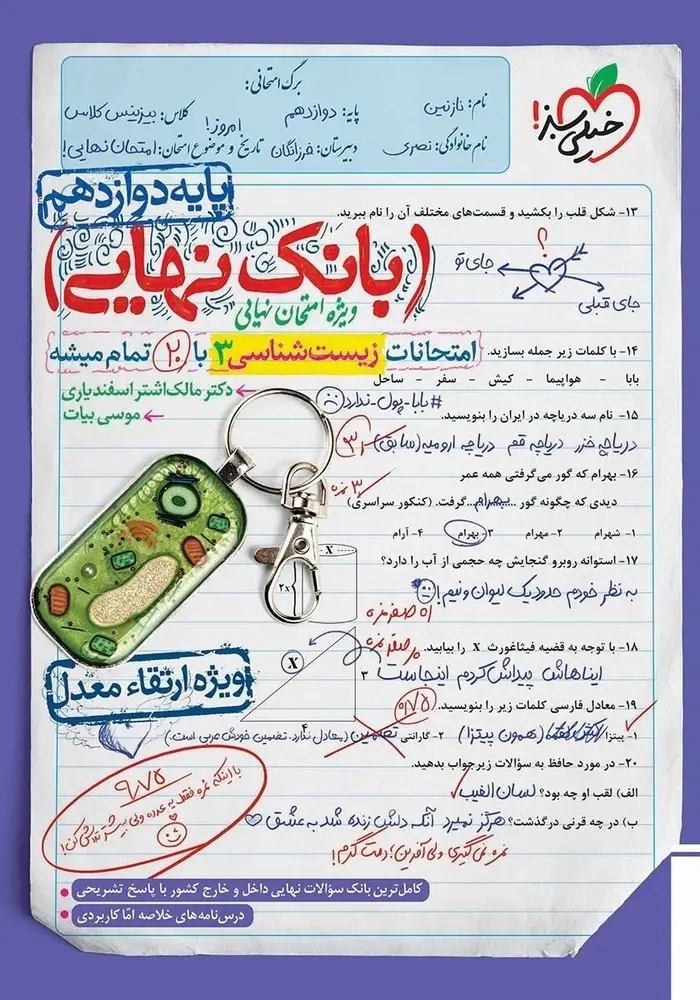 برگ امتحانی:
نام: نازنین
پایه: دوازدهم
کلاس: بیزینس کلاس
نام خانوادگی: نصری
دبیرستان: فرزانگان
تاریخ و موضوع امتحان: امتحان نهایی!
امروز!
خیلی سبز!
پایه دوازدهم
(بانک نهایی)
ویژه امتحان نهایی
امتحانات زیست‌شناسی ۳ با ۲۰ تمام میشه
دکتر مالک‌اشتر اسفندیاری
موسی بیات
۱۳- شکل قلب را بکشید و قسمت‌های مختلف آن را نام ببرید.
؟
جای تو
جای قبلی
۱۴- با کلمات زیر جمله بسازید.
بابا - هواپیما - کیش - سفر - ساحل
#بابا-پول-ندارد
۱۵- نام سه دریاچه در ایران را بنویسید.
دریاچه خزر دریاچه قم دریاچه ارومیه (سابق)
۱۶- بهرام که گور می‌گرفتی همه عمر
دیدی که چگونه گور ...بهرام... گرفت. (کنکور سراسری)
۳ نمره
۱- شهرام ۲- مهرام ۳- بهرام ۴- آرام
۱۷- استوانه روبرو گنجایش چه حجمی از آب را دارد؟
X
2x
به نظر خودم حدود یک لیوان و نیم!
۱۸- با توجه به قضیه فیثاغورث X را بیابید.
X
۳
۴
ایناهاش پیداش کردم اینجاست
۱۹- معادل فارسی کلمات زیر را بنویسید.
۰/۷۵
۱- پیتزا (همون پیتزا) ۲- گارانتی تضمین (معادل ندارد. تضمین خودش عربی است.)
۲۰- در مورد حافظ به سؤالات زیر جواب بدهید.
الف) لقب او چه بود؟ لسان الغیب
ب) در چه قرنی درگذشت؟ هرگز نمیرد آنکه دلش زنده شد به عشق
نمره نمی‌گیری ولی آفرین! دمت گرم!
ویژه ارتقاء معدل
۹/۷۵
کامل‌ترین بانک سؤالات نهایی داخل و خارج کشور با پاسخ تشریحی
درس‌نامه‌های خلاصه امّا کاربردی